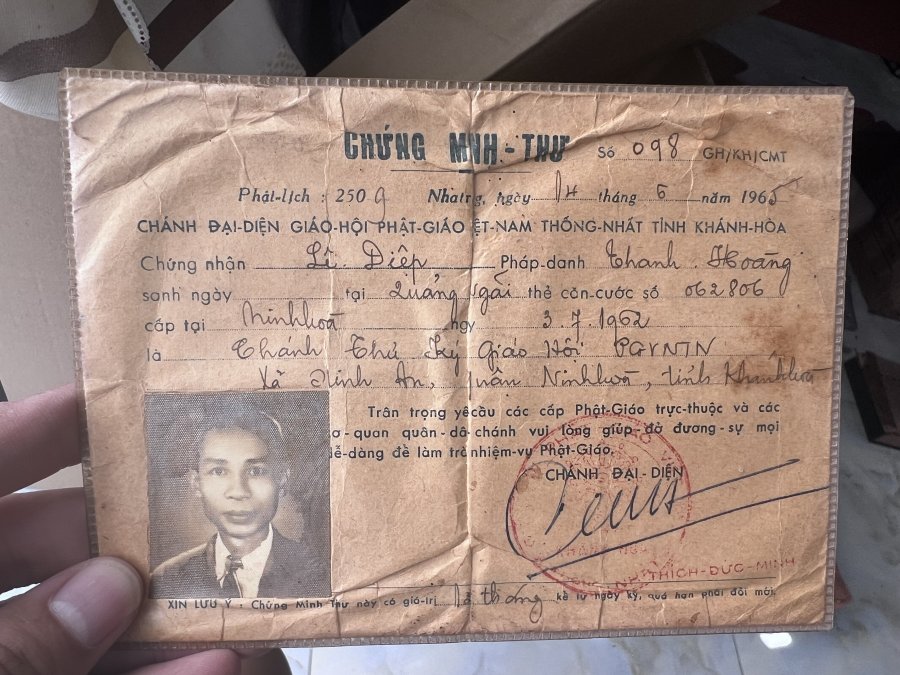 CHỨNG MNH-THƯ Số 098 GH/KH/CMT
Phật-lịch : 2509 Nhatrg, ngày 14 tháng 6 năm 1965
CHÁNH ĐẠI-DIỆN GIÁO-HỘI PHẬT-GIÁO ỆT-NAM THỐNG-NHẤT TỈNH KHÁNH-HÒA
Chứng nhận Lê Diệp, Pháp-danh Thanh Hoàng
sanh ngày tại Quảng Ngãi thẻ căn-cước số 062806
cấp tại Ninhhoà ngy 3.7.1962
là Chánh Thư Ký Giáo Hội PGVNTN
Xã Ninh An, quận Ninhhoà, tỉnh Khánhhoà
Trân trọng yêcầu các cấp Phật-Giáo trực-thuộc và các
ơ-quan quân-dâ-chánh vui lòng giúp-đỡ đương-sự mọi
dễ-dàng để làm trànhiệm-vụ Phật-Giáo.
CHÁNH ĐẠI-DIỆN
THÍCH-ĐỨC-MINH
XIN LƯU Ý : Chứng Minh Thư này có giá-trị 12 tháng kể từ ngày ký, quá hạn phải đổi mới.